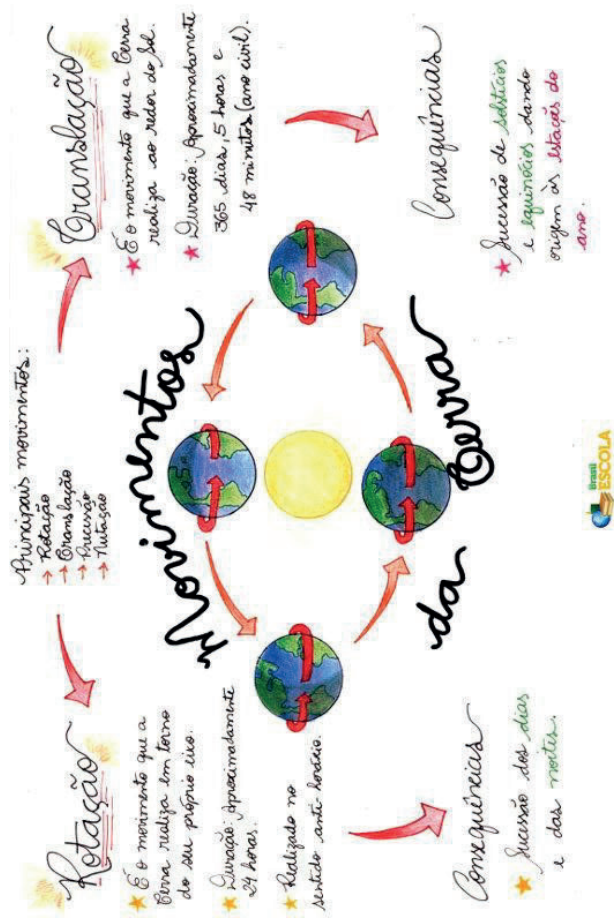 Principais movimentos:
→ Rotação
→ Translação
→ Precessão
→ Nutação
Rotação
★ É o movimento que a
Terra realiza em torno
do seu próprio eixo.
★ Duração: Aproximadamente
24 horas.
★ Realizado no
sentido anti-horário.
Consequências
★ Sucessão dos dias
e das noites.
Movimentos
da Terra
Translação
★ É o movimento que a Terra
realiza ao redor do sol.
★ Duração: Aproximadamente
365 dias, 5 horas e
48 minutos (ano civil).
Consequências
★ Sucessão de solstícios
e equinócios dando
origem às estações do
ano.
Brasil
ESCOLA